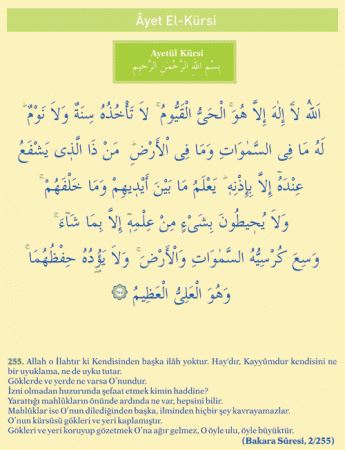 Âyet El-Kürsi
Ayetül Kürsi
بِسْمِ اللّٰهِ الرَّحْمٰنِ الرَّحِيمِ
اَللّٰهُ لَٓا اِلٰهَ اِلَّا هُوَۚ اَلْحَيُّ الْقَيُّومُۚ لَا تَأْخُذُهُ سِنَةٌ وَلَا نَوْمٌۜ
لَهُ مَا فِى السَّمٰوَاتِ وَمَا فِى الْاَرْضِۜ مَنْ ذَا الَّذ۪ى يَشْفَعُ
عِنْدَهُٓ اِلَّا بِاِذْنِه۪ۜ يَعْلَمُ مَا بَيْنَ اَيْد۪يهِمْ وَمَا خَلْفَهُمْۚ
وَلَا يُح۪يطُونَ بِشَىْءٍ مِنْ عِلْمِه۪ٓ اِلَّا بِمَا شَٓاءَۚ
وَسِعَ كُرْسِيُّهُ السَّمٰوَاتِ وَالْاَرْضَۚ وَلَا يَؤُ۫دُهُ حِفْظُهُمَاۚ
وَهُوَ الْعَلِىُّ الْعَظ۪يمُ
255. Allah o İlahtır ki Kendisinden başka ilâh yoktur. Hay'dır, Kayyûmdur kendisini ne
bir uyuklama, ne de uyku tutar.
Göklerde ve yerde ne varsa O'nundur.
İzni olmadan huzurunda şefaat etmek kimin haddine?
Yarattığı mahlûkların önünde ardında ne var, hepsini bilir.
Mahlûklar ise O'nun dilediğinden başka, ilminden hiçbir şey kavrayamazlar.
O'nun kürsüsü gökleri ve yeri kaplamıştır.
Gökleri ve yeri koruyup gözetmek O'na ağır gelmez, O öyle ulu, öyle büyüktür.
(Bakara Sûresi, 2/255)